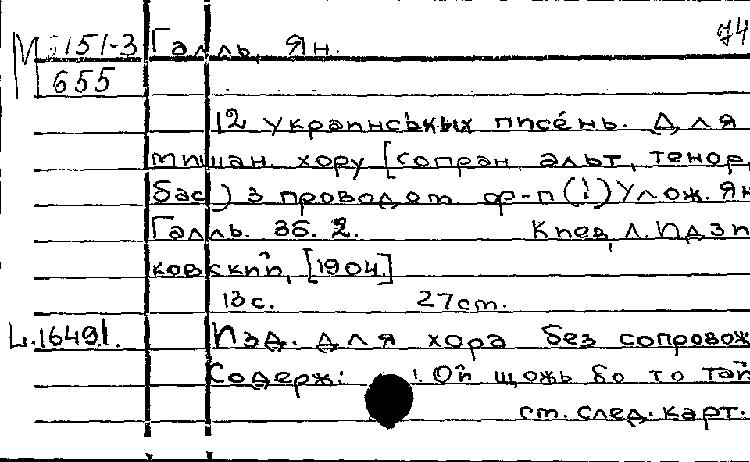 М 151-3 Галль, Ян. 74
655
12 украинсъкых писе́нь. Для
мишан. хору [сопран, альт, тенор,
бас) з проводом ф-п (!) Улож. Ян
Галль. Зб. 2. Киев, Л. Идзи
ковский, [1904.]
13с. 27см.
L.1649l. Изд. для хора без сопровож
Содерж: 1. Ой щожь бо то тай
см. след. карт.